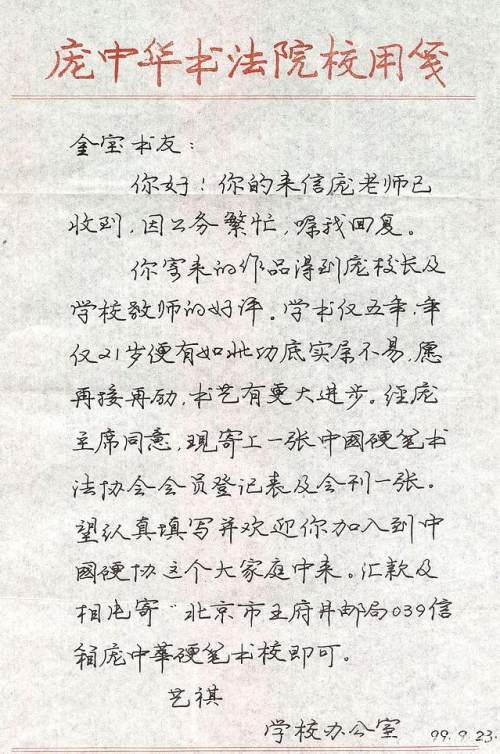 庞中华书法院校用笺
金宝书友：
你好！你的来信庞老师已
收到，因公务繁忙，嘱我回复。
你寄来的作品得到庞校长及
学校教师的好评。学书仅五年，年
仅21岁便有如此功底实属不易，愿
再接再励，书艺有更大进步。经庞
主席同意，现寄上一张中國硬笔书
法协会会员登记表及会刊一张。
望认真填写并欢迎你加入到中
國硬协这个大家庭中来。汇款及
相片寄"北京市王府井邮局039信
箱庞中華硬笔书校即可。
艺祺
学校办公室 99.9.23.